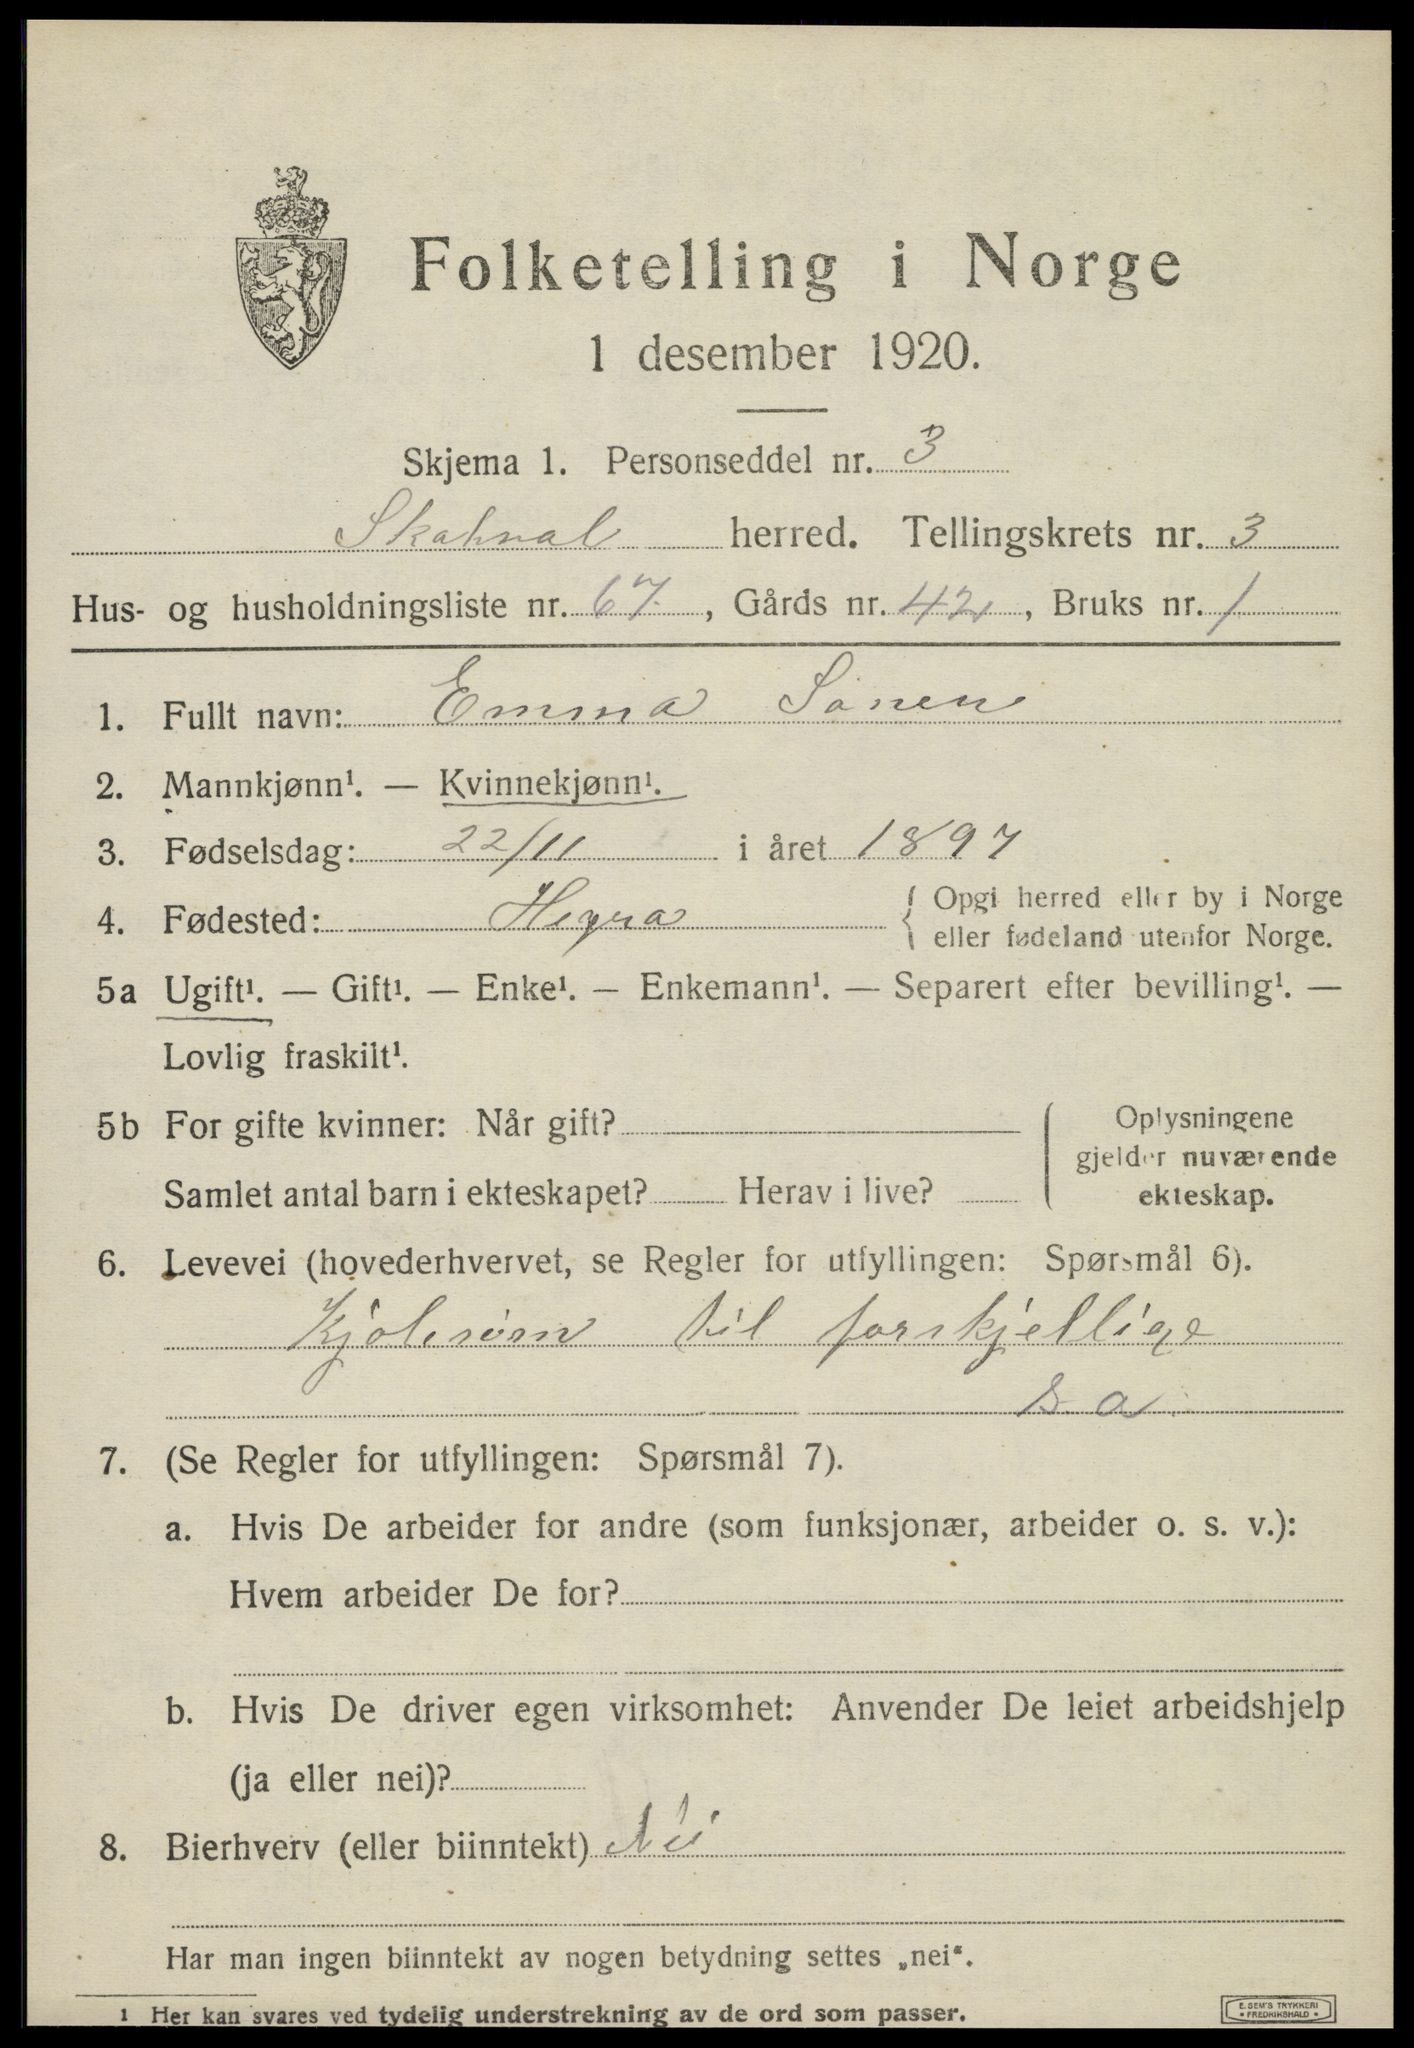 Folketelling i Norge
1 desember 1920.
Skjema 1. Personseddel nr. 3
Skatval herred. Tellingskrets nr. 3
Hus- og husholdningsliste nr. 67, Gårds nr. 42, Bruks nr. 1
1. Fullt navn: Emma Sonen
2. Mannkjønn¹. — Kvinnekjønn¹.
3. Fødselsdag: 22/11 i året 1897
4. Fødested: Hegra { Opgi herred eller by i Norge
eller fødeland utenfor Norge.
5a Ugift¹. — Gift¹. — Enke¹. — Enkemann¹. — Separert efter bevilling¹. —
Lovlig fraskilt¹.
5b For gifte kvinner: Når gift?
Samlet antal barn i ekteskapet? Herav i live?
Oplysningene
gjelder nuværende
ekteskap.
6. Levevei (hovederhvervet, se Regler for utfyllingen: Spørsmål 6).
Kjolesøm til forskjellige
s a
7. (Se Regler for utfyllingen: Spørsmål 7).
a. Hvis De arbeider for andre (som funksjonær, arbeider o. s. v.):
Hvem arbeider De for?
b. Hvis De driver egen virksomhet: Anvender De leiet arbeidshjelp
(ja eller nei)?
8. Bierhverv (eller biinntekt) Nei
Har man ingen biinntekt av nogen betydning settes „nei“.
1 Her kan svares ved tydelig understrekning av de ord som passer.
E. SEM'S TRYKKERI
• FREDRIKSHALD •